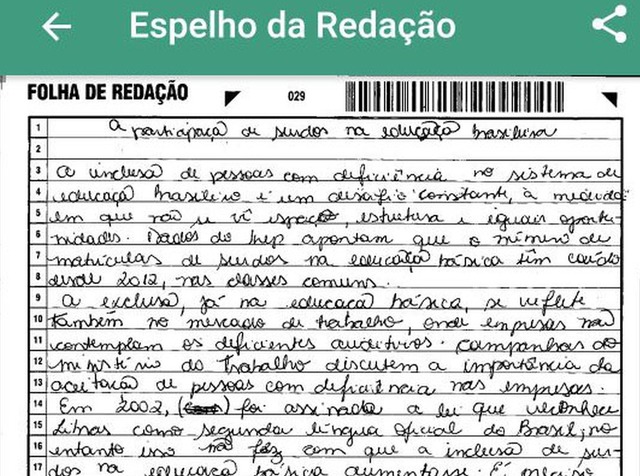 Espelho da Redação
FOLHA DE REDAÇÃO 029
1 A participaçã de surdos na educaçã brasileira
2
3 A inclusã de pessoas com deficiência no sistema de
4 educaçã brasileiro é um desafio constante, à medida
5 em que não se vê espaço, estrutura e iguais oportu-
6 nidades. Dados do Inep apontam que o número de
7 matrículas de surdos na educaçã básica têm caído
8 desde 2012, nas classes comuns.
9 A exclusã, já na educacã básica, se reflete
10 também no mercado de trabalho, onde empresas nã
11 contemplam os deficientes auditivos. Campanhas do
12 ministério do Trabalho discutem a importância da
13 aceitacã de pessoas com deficiência nas empresas.
14 Em 2002, foi assinada a lei que reconhece
15 Libras como segunda língua oficial do Brasil; no
16 entanto isso nã faz com que a inclusã de sur-
dos na educacã básica aumentasse. É preciso